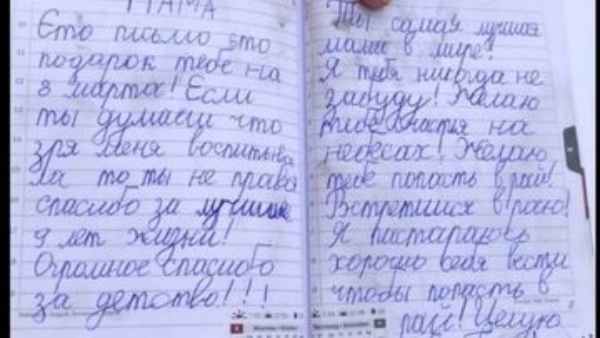 МАМА
Ето письмо ето
подарок тебе на
8 марта! Если
ты думаеш что
зря меня воспитыва
ла то ты не права
спасибо за лучшие
9 лет жизни!
Огромное спасибо
за детство!!!
Ты самая лучшая
мама в мире!
Я тебя никогда не
забуду! Желаю
тебе счастья на
небесах! Желаю
тебе попасть в рай!
Встретимся в раю!
Я пастараюсь
хорошо себя вести
чтобы попасть в
рай! Целую